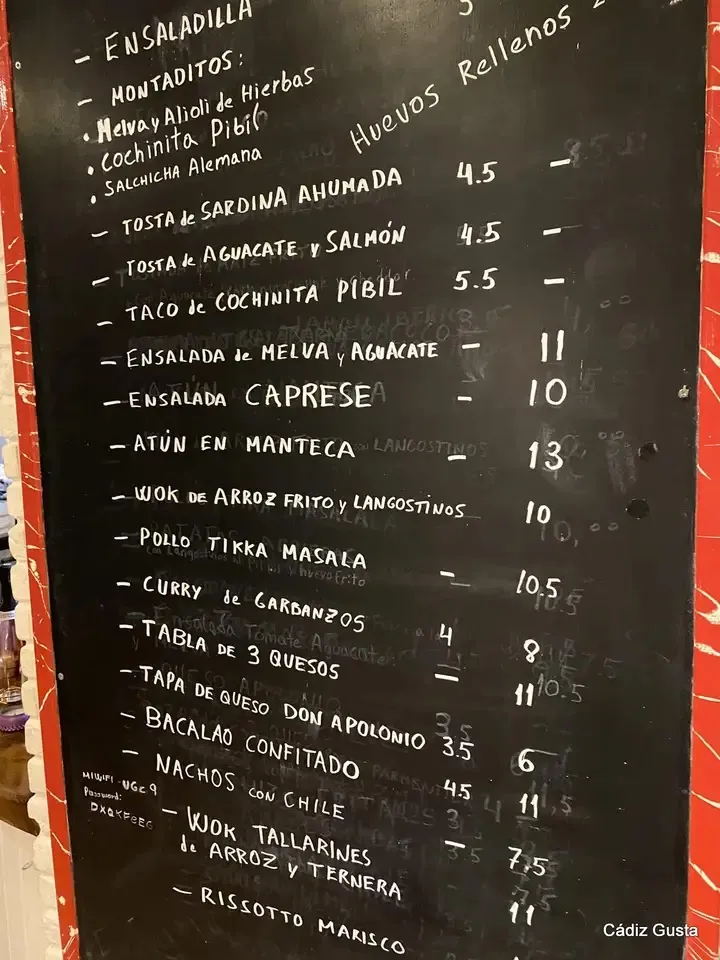 - ENSALADILLA
- MONTADITOS:
• Melva y Alioli de Hierbas
• Cochinita Pibil
• SALCHICHA Alemana
Huevos Rellenos
- TOSTA de SARDINA AHUMADA 4.5 -
- TOSTA de AGUACATE y SALMÓN 4.5 -
- TACO de COCHINITA PIBIL 5.5 -
- ENSALADA de MELVA y AGUACATE - 11
- ENSALADA CAPRESE - 10
- ATÚN EN MANTECA - 13
- WOK DE ARROZ FRITO y LANGOSTINOS 10
- POLLO TIKKA MASALA - 10.5
- CURRY de GARBANZOS 4 8
- TABLA DE 3 QUESOS - 11
- TAPA DE QUESO DON APOLONIO 3.5 6
- BACALAO CONFITADO 4.5 11
- NACHOS con CHILE 3 7,5
- WOK TALLARINES
de ARROZ y TERNERA - 11
- RISSOTTO MARISCO
MIWIFI-UGC9
Password:
Cádiz Gusta